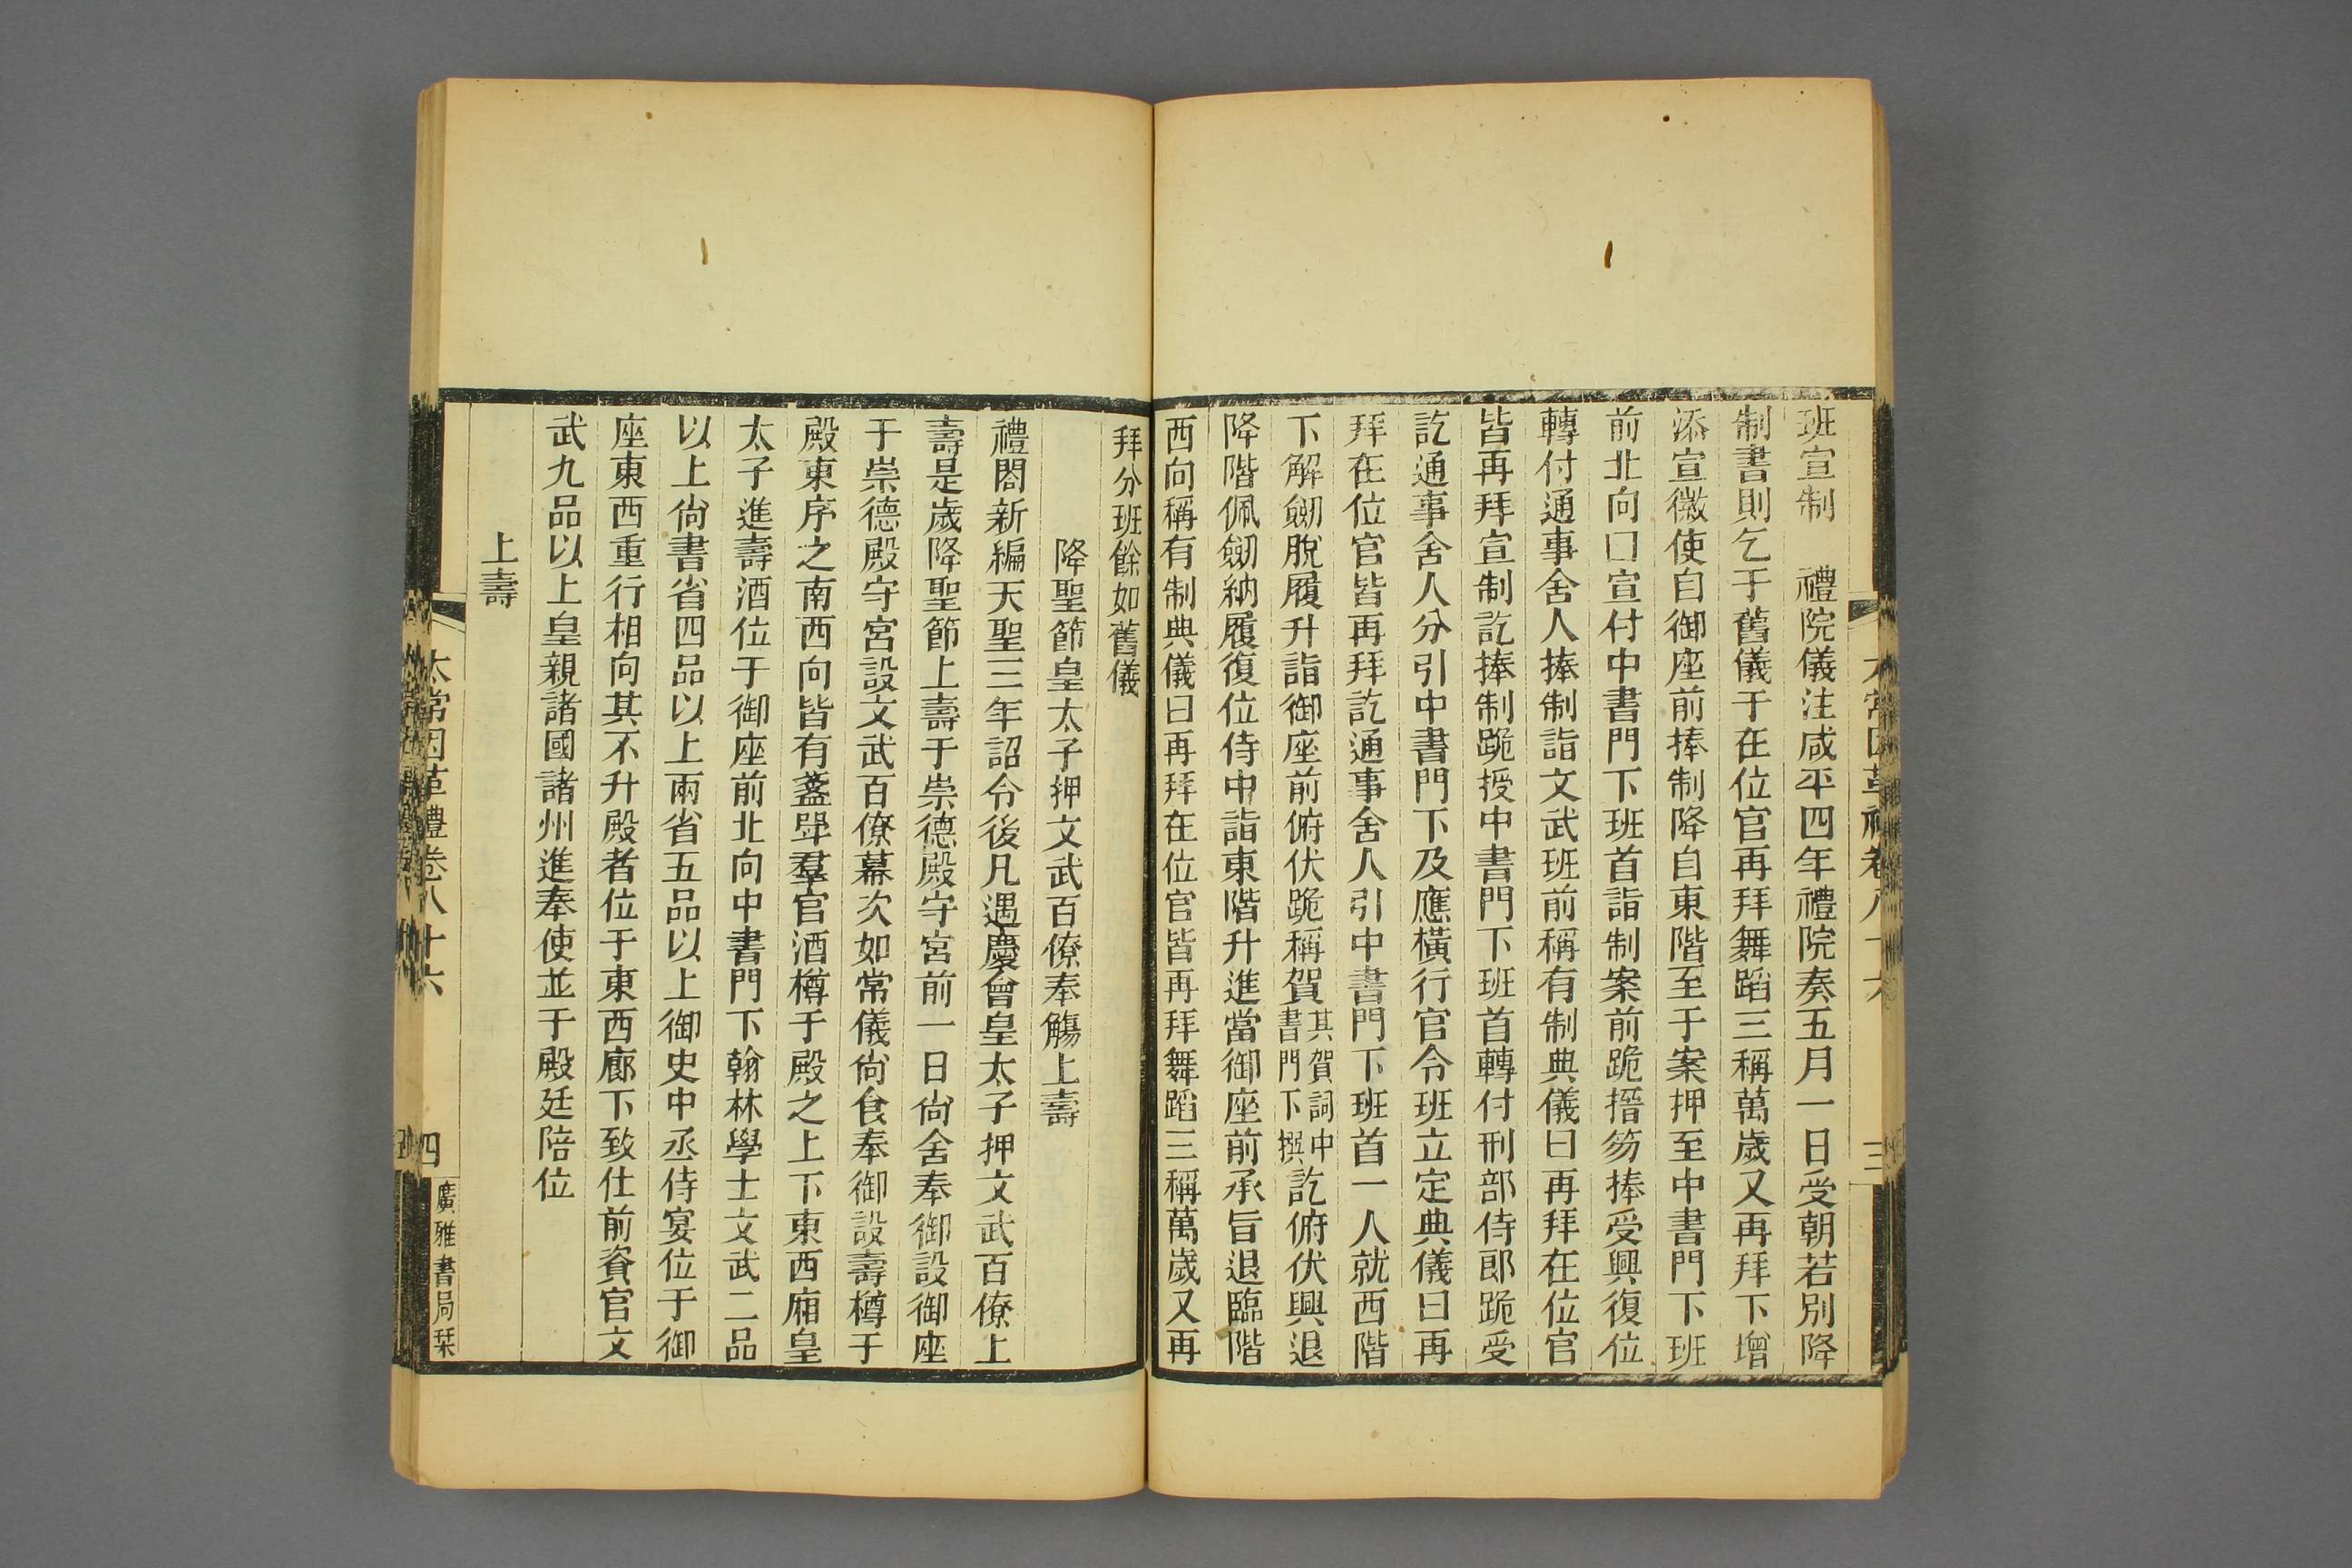 班宣制　禮院儀注咸平四年禮院奏五月一日受朝若別降
制書則乞于舊儀于在位官再拜舞蹈三稱萬歲又再拜下增
添宣徽使自御座前捧制降自東階至于案押至中書門下班
前北向口宣付中書門下班首詣制案前跪搢笏捧受興復位
轉付通事舍人捧制詣文武班前稱有制典儀曰再拜在位官
皆再拜宣制訖捧制跪授中書門下班首轉付刑部侍郎跪受
訖通事舍人分引中書門下及應橫行官令班立定典儀曰再
拜在位官皆再拜訖通事舍人引中書門下班首一人就西階
下解劒脫履升詣御座前俯伏跪稱賀其賀詞中書門下撰訖俯伏興退
降階佩劒納履復位侍中詣東階升進當御座前承旨退臨階
西向稱有制典儀曰再拜在位官皆再拜舞蹈三稱萬歲又再
拜分班餘如舊儀
降聖節皇太子押文武百僚奉觴上壽
禮閤新編天聖三年詔令後凡遇慶會皇太子押文武百僚上
壽是歲降聖節上壽于崇德殿守宮前一日尙舍奉御設御座
于崇德殿守宮設文武百僚幕次如常儀尙食奉御設壽樽于
殿東序之南西向皆有盞斝羣官酒樽于殿之上下東西廂皇
太子進壽酒位于御座前北向中書門下翰林學士文武二品
以上尙書省四品以上兩省五品以上御史中丞侍宴位于御
座東西重行相向其不升殿者位于東西廊下致仕前資官文
武九品以上皇親諸國諸州進奉使並于殿廷陪位
上壽
太常因革禮卷八十六
四
廣雅書局栞